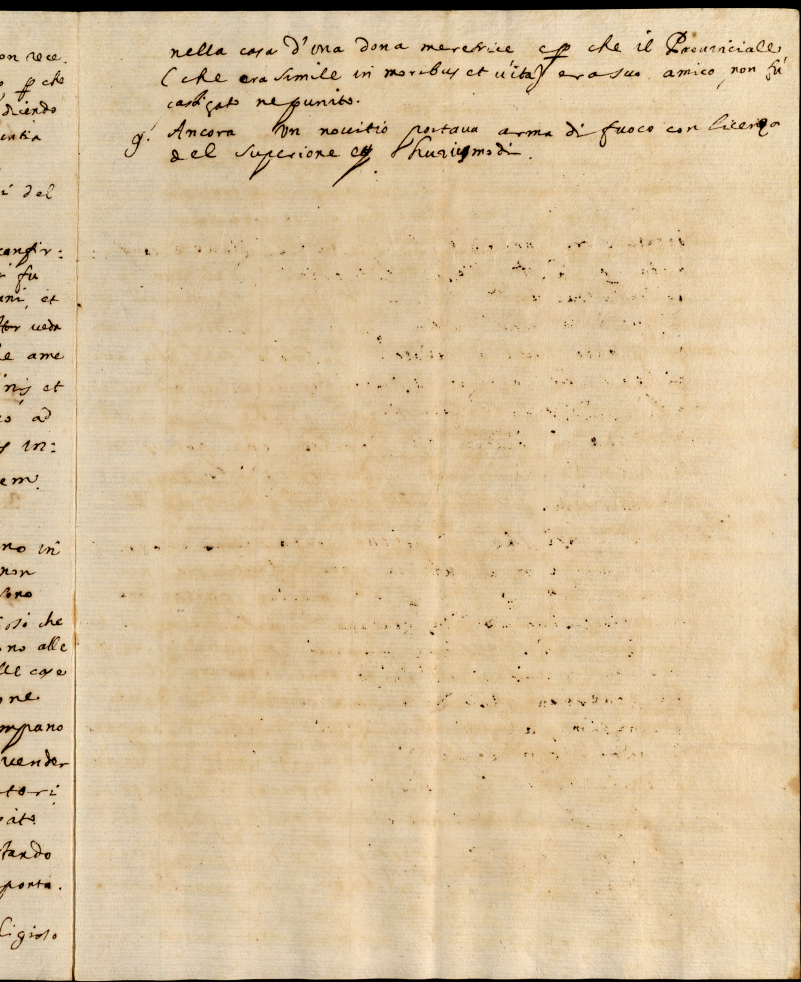 on rece.
che
diendo
entia
i del
confir:
fu
uni, et
uedr
le ame
nis et
ad
in:
em.
no in
non
sono
così che
no alle
lle case
one
mpano
uender
tori
tando
porta.
ligioso
nella casa d'una dona meretrice che il Prouinciale
(che era simile in moribus et uita) era suo amico, non fù
castigato ne punito.
9.° Ancora un nouitio portaua arma di fuoco con licenza
del Superiore